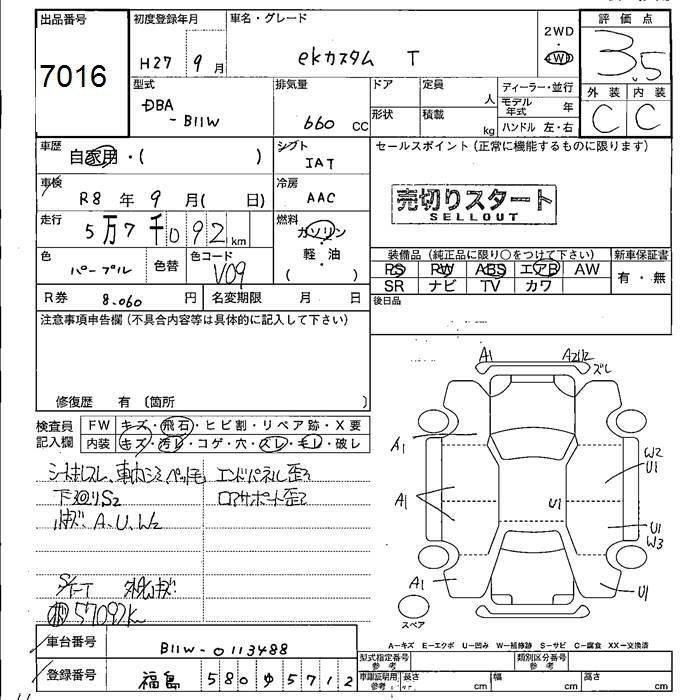 出品番号 初度登録年月 車名・グレード 評価点
7016 H27 9月 ekカスタム T 2WD ・ 4WD 3.5
型式 排気量 ドア 定員 人 ディーラー・並行 外装 内装
DBA-B11W 660 cc 形状 積載 kg モデル年式 年 ハンドル 左・右 C C
車歴 自家用・( ) シフト IAT セールスポイント(正常に機能するものに限ります)
車検 R8年9月( 日) 冷房 AAC
売切りスタート
SELLOUT
走行 5万7千092km 燃料 ガソリン・軽・油 ( )
色 パープル 色替 色コード V09
装備品(純正品に限り○をつけて下さい) 新車保証書
PS PW ABS エアB AW 有・無
SR ナビ TV カワ
R券 8.060円 名変期限 月 日 後日品
注意事項申告欄(不具合内容等は具体的に記入して下さい)
修復歴 有〔箇所 〕
検査員記入欄 FW キズ・飛石・ヒビ割・リペア跡・X要
内装 キズ・汚レ・コゲ・穴・スレ・モレ・破レ
エンドパネル歪
下廻りS2 ロアサポート歪
A、U、W2
57092km
A1 A2U2 ズレ
A1 W2 U1
A1 U1 U1 W3
A1 U1
スペア
A−キズ E−エクボ U−凹み W−補修跡 S−サビ C−腐食 XX−交換済
車台番号 B11W-0113488
型式指定番号 参考 類別区分番号 参考
登録番号 福島 580 ゆ 5712
車庫証明用 参考 長さ cm 幅 cm 高さ cm